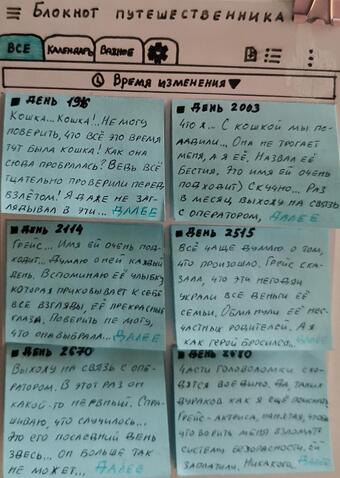 Блокнот путешественника
Все
Календарь
Важное
Время изменения
День 196
Кошка... Кошка!.. Не могу
поверить, что всё это время
тут была кошка! Как она
сюда пробралась? Ведь всё
тщательно проверили перед
взлётом! Я даже не заг-
лядывал в эти... Далее
День 2003
Что я... С кошкой мы по-
ладили... Она не трогает
меня, а я её. Назвал её
Бестия. Это имя ей очень
подходит) Скучно... Раз
в месяц выхожу на связь
с оператором, Далее
День 2114
Грейс... Имя ей очень под-
ходит... Думаю о ней каждый
день. Вспоминаю её улыбку
которая приковывает к себе
все взгляды, её прекрасные
глаза. Поверить не могу,
что она выбрала... Далее
День 2515
Всё чаще думаю о том,
что произошло. Грейс ска-
зала, что эти негодяи
украли все деньги её
семьи. Обманули её нес-
частных родителей. А я
как герой бросился... Далее
День 2670
Выхожу на связь с опе-
ратором. В этот раз он
какой-то нервный. Спра-
шиваю, что случилось...
Это его последний день
здесь... Он больше так
не может... Далее
День 2680
Части головоломки схо-
дятся воедино. Да, таких
дураков как я ещё поискать
Грейс - актриса, нанятая, чтобы
уговорить меня взломать
систему безопасности. Ей
заплатили. Никакого Далее